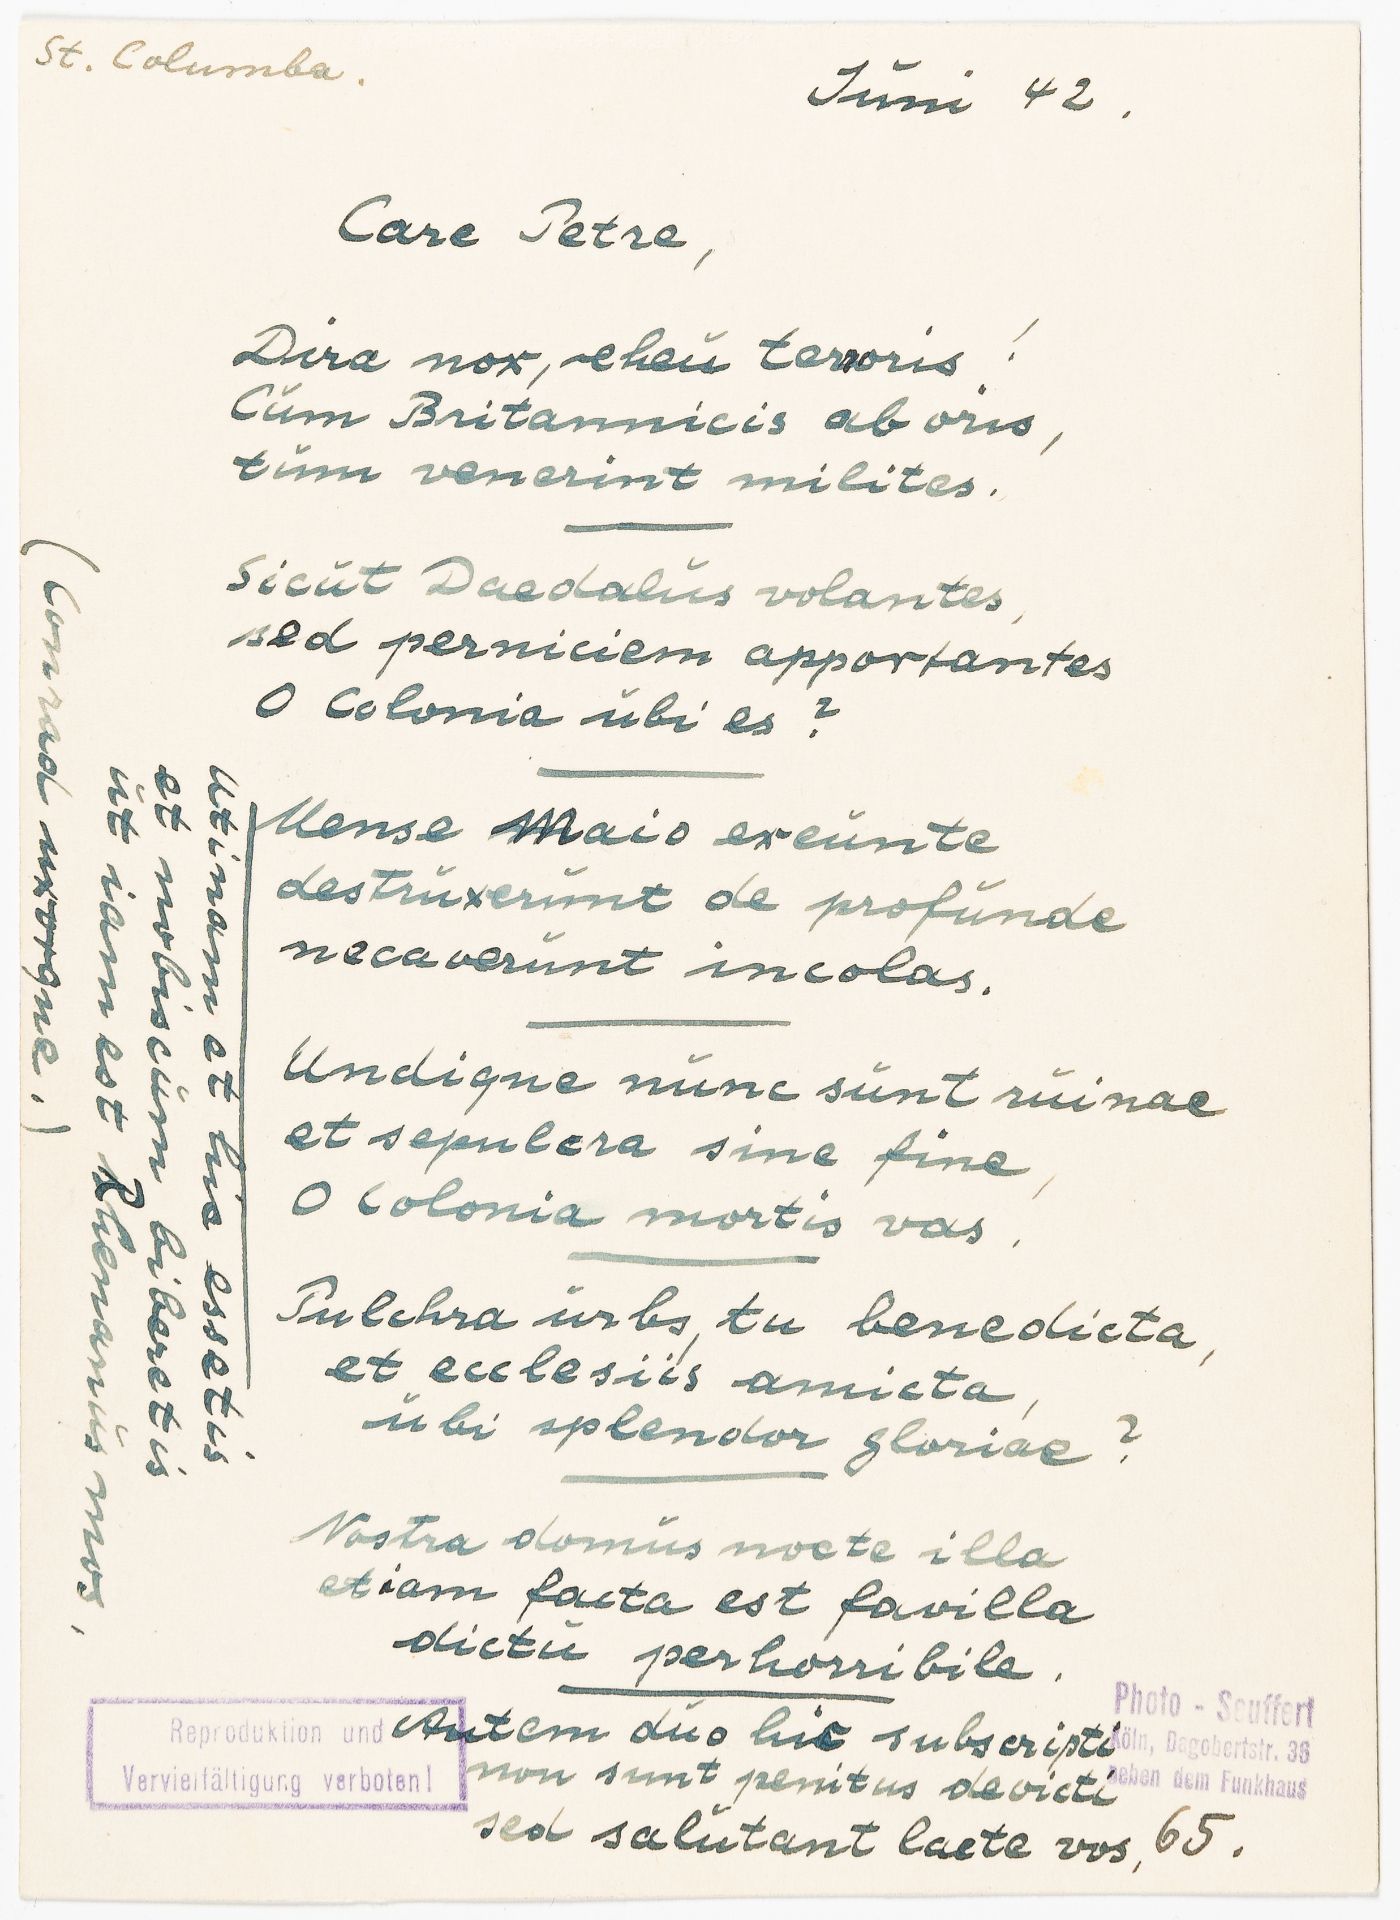 St. Columba.
Jŭni 42.
Care Petre,
Dira nox, eheŭ terroris!
Cŭm Britannicis ab oris,
tŭm venerint milites.
Sicŭt Daedalŭs volantes,
sed perniciem apportantes
O Colonia ŭbi es?
Mense Maio exeŭnte
destrŭxerŭnt de profŭnde
necaverŭnt incolas.
Undique nŭnc sŭnt rŭinae
et sepulcra sine fine,
O Colonia mortis vas.
Pulchra ŭrbs, tu benedicta,
et ecclesiis amicta,
ŭbi splendor gloriae?
Nostra domŭs nocte illa
etiam facta est favilla
dictŭ perhorribile.
Autem dŭo hic subscripti
non sunt penitus devicti
sed salŭtant laete vos,
65.
Utinam et hic essetis
et nobiscŭm biberetis
ŭt iam est Rhenanŭs mos,
(Conrad uxorque.)
Reproduktion und
Vervielfältigung verboten!
Photo - Seuffert
Köln, Dagobertstr. 36
neben dem Funkhaus